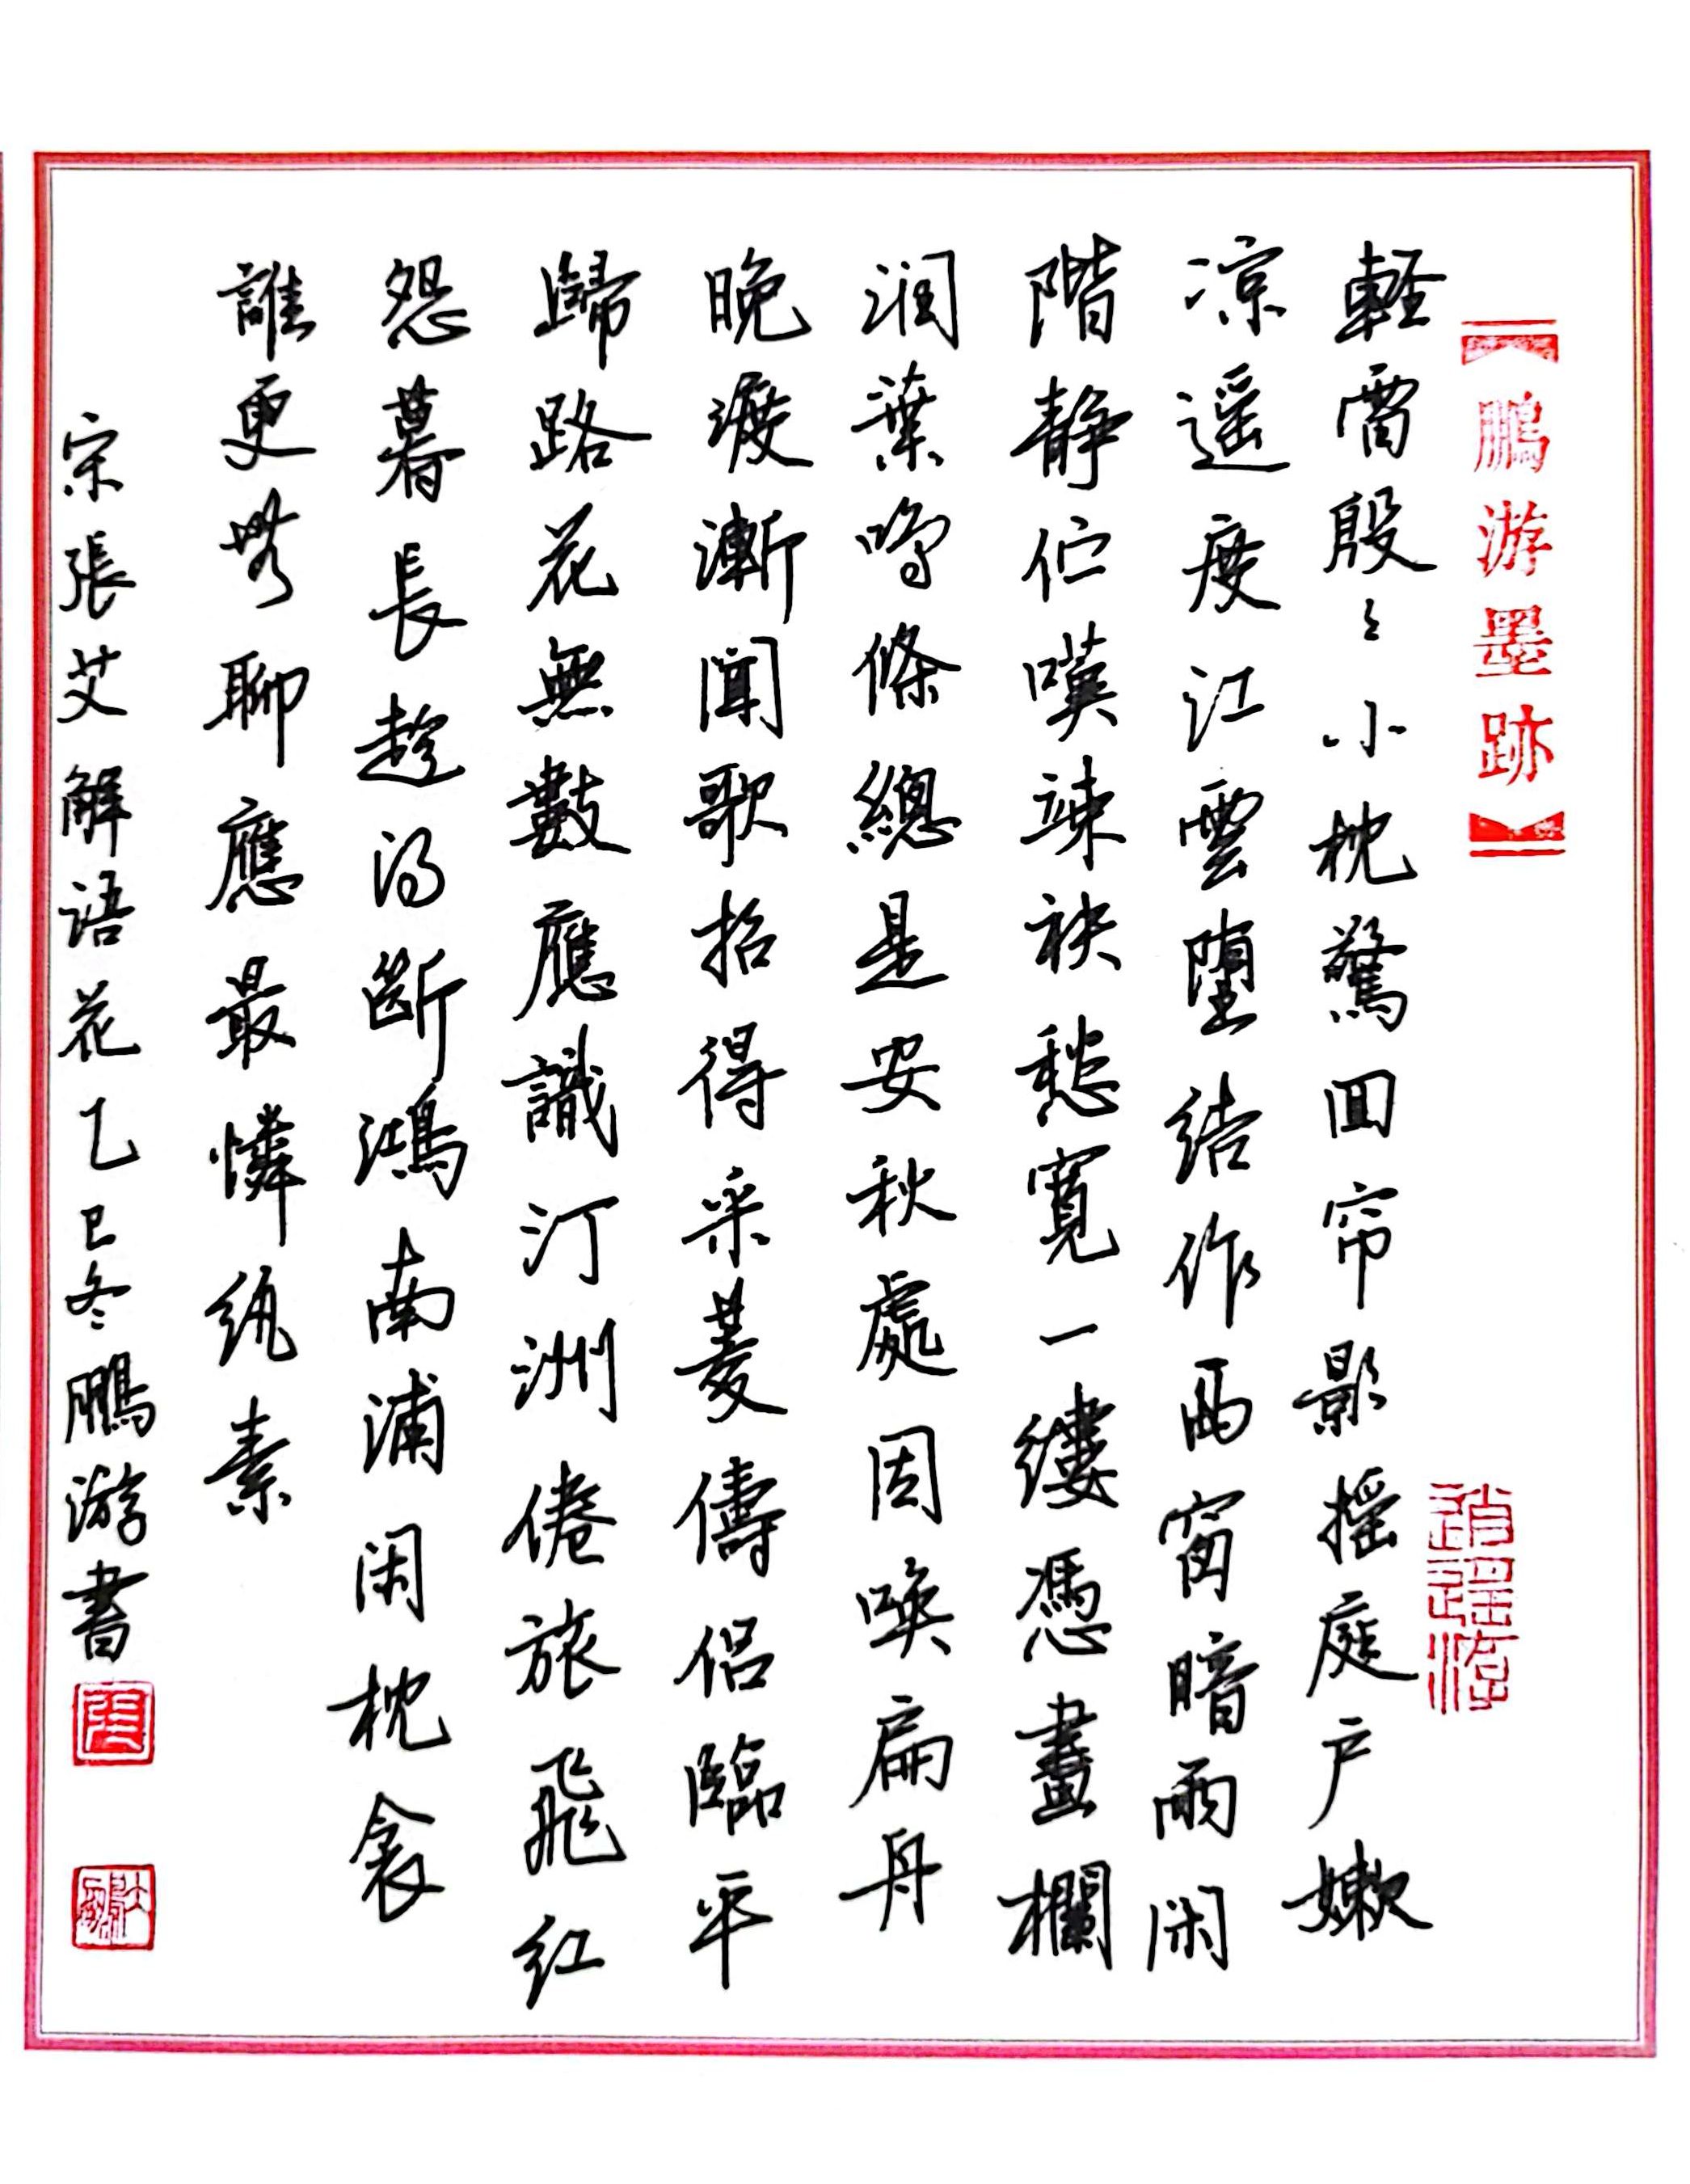 鵬游墨跡
逍遥游
軽雷殷〻小枕驚回帘影摇庭户嫩
凉遥度江雲堕结作西窗暗雨闲
階静伫嘆竦袂愁寬一缕憑畫欄
润葉鳴條總是安秋處因唤扁舟
晚渡漸闻歌招得采菱儔侣臨平
歸路花無數應識汀洲倦旅飛红
怨暮長趁得断鴻南浦闲枕衾
誰更無聊應最憐纨素
宋張艾解语花乙巳冬鵬游書